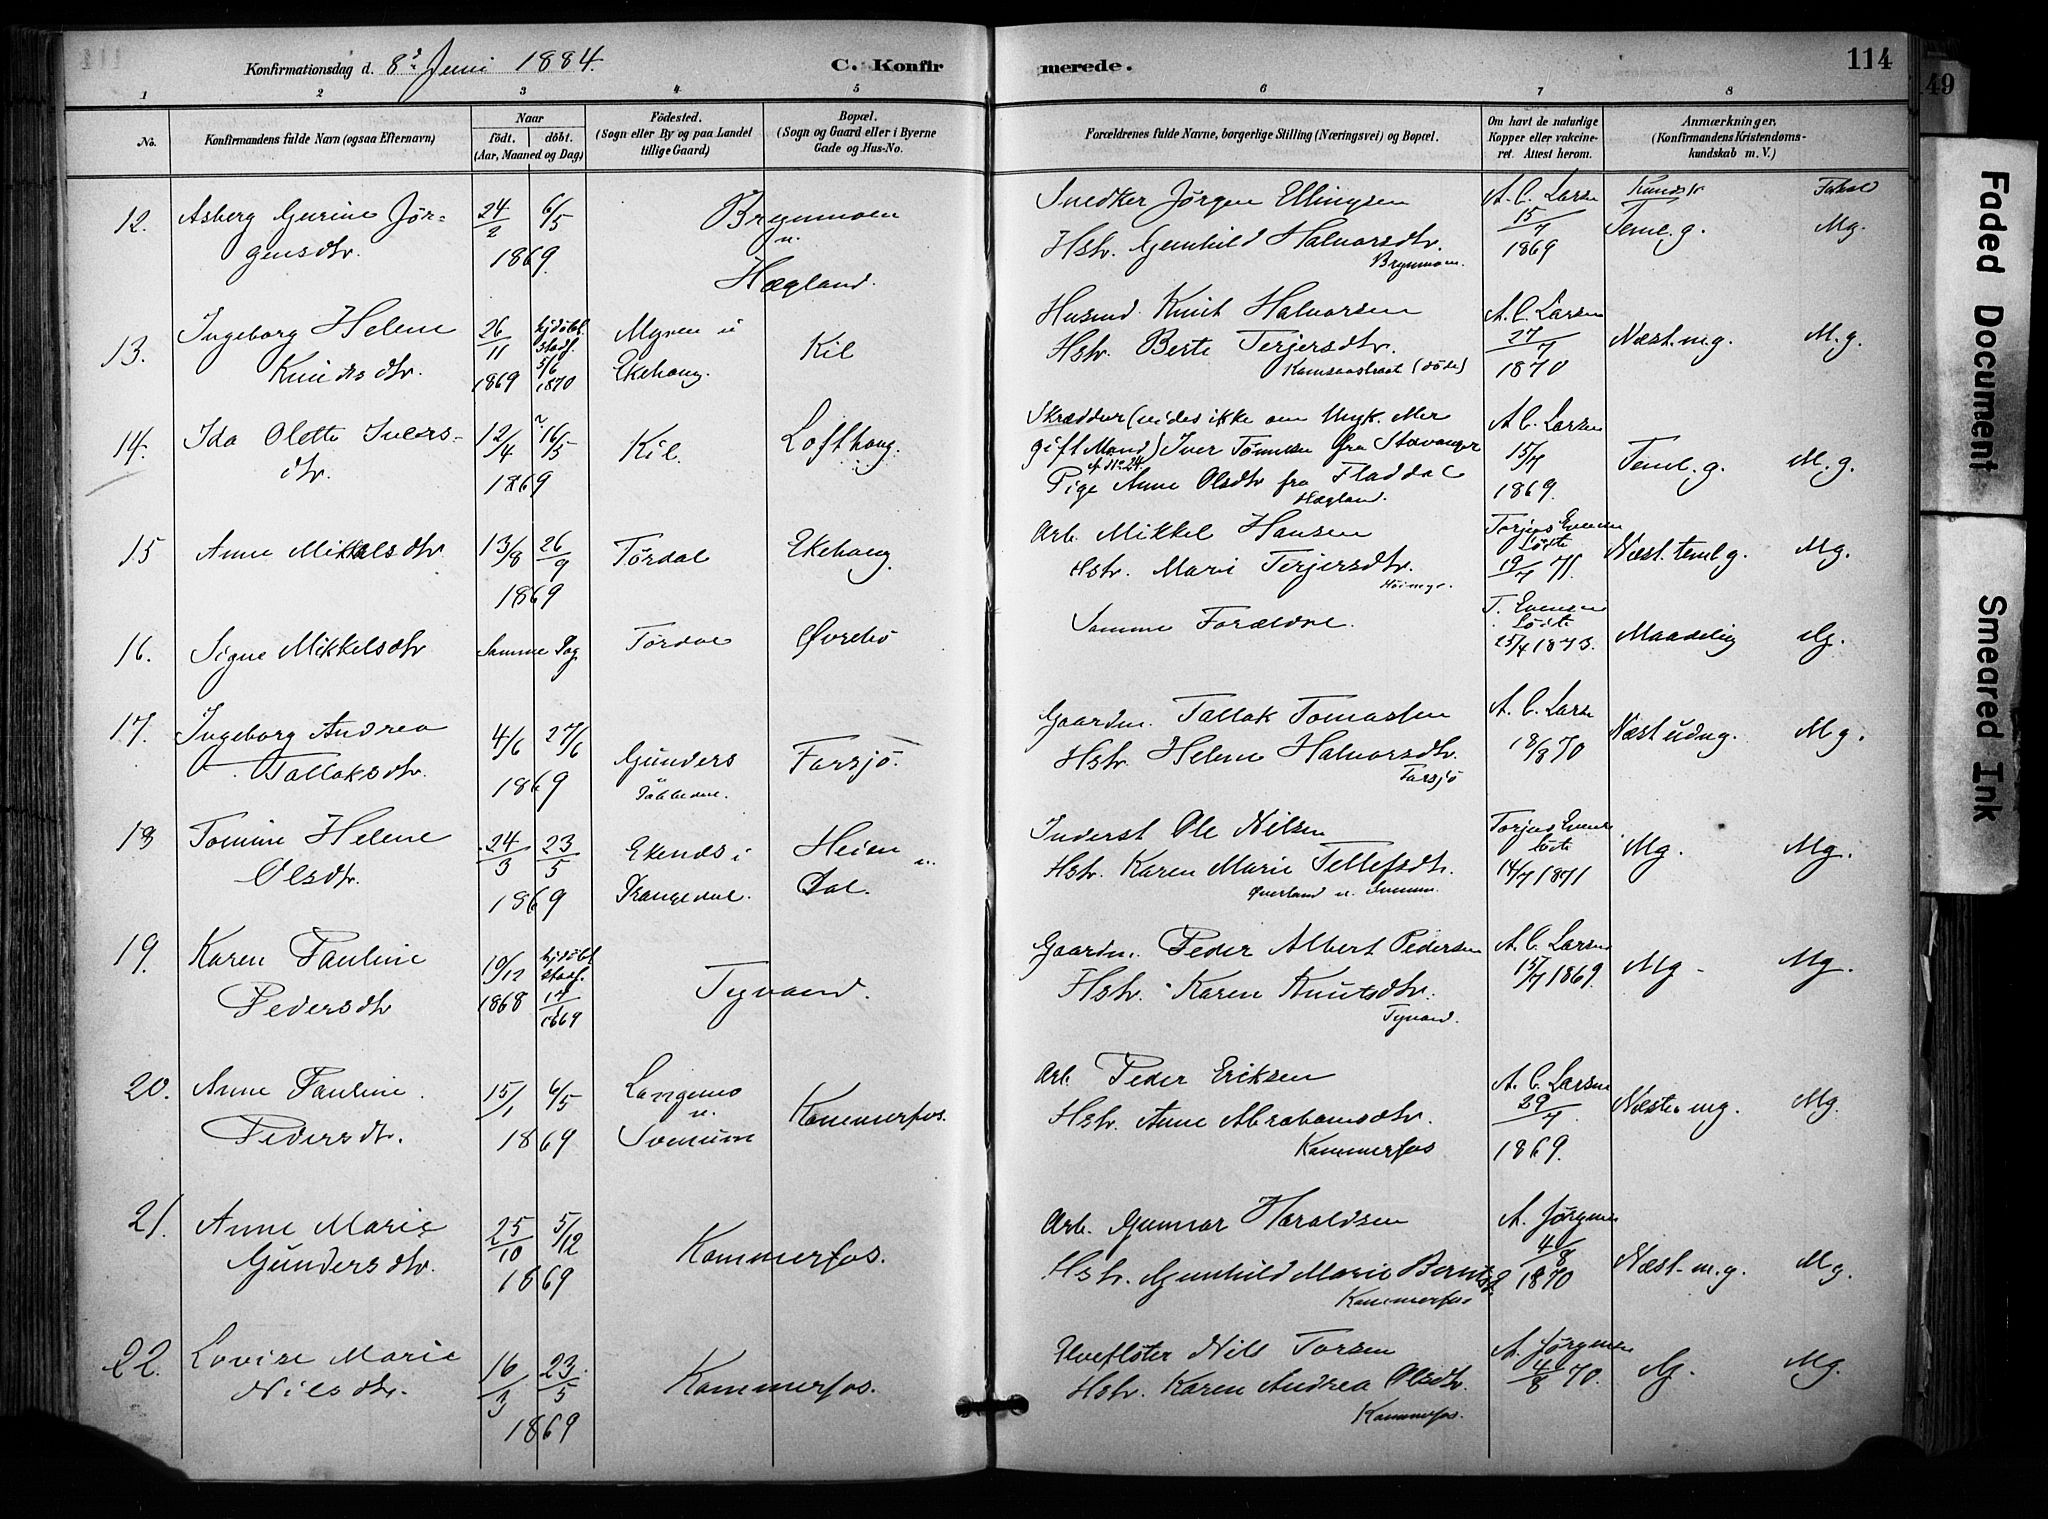 Konfirmationsdag d. 8de Juni 1884.
C. Konfirmerede.
114
1 2 3 4 5 6 7 8
No.
Konfirmandens fulde Navn (ogsaa Efternavn)
Naar
født. døbt.
(Aar, Maaned og Dag)
Fødested.
(Sogn eller By og paa Landet
tillige Gaard)
Bopæl.
(Sogn og Gaard eller i Byerne
Gade og Hus-No.
Forældrenes fulde Navne, borgerlige Stilling (Næringsvei) og Bopæl.
Om havt de naturlige
Kopper eller vakcine-
ret. Attest herom.
Anmærkninger.
(Konfirmandens Kristendoms-
kundskab m. V.)
12. Asberg Gurine Jør-
gensdtr.
24/2 6/5
1869
Brynmoen
u.
Hægland.
Snedker Jørgen Ellingsen
Hstr. Gunhild Halvorsdtr.
Brynmoen.
A. C. Larsen
15/7
1869
Kundsk.
Teml. g.
Forhold
Mg.
13. Ingeborg Helene
Knudsdtr.
26/11
1869
hjdøbt.
stadf.
5/6
1870
Myren u
Ekehaug.
Kil
Husmd Knut Halvorsen
Hstr. Berte Terjersdtr.
(døde)
A. C. Larsen
27/7
1870
Næst. m. g.
M. g.
14. Ida Olette Ivers-
dtr.
12/4 16/5
1869
Kil.
Lofthaug.
Skrædder (vides ikke om Ungk. eller
gift Mand) Iver Tønnesen fra Stavanger
cf. No. 24.
Pige Anne Olsdtr fra Fladdal
Hægland.
A. C. Larsen
15/7
1869.
Teml. g.
M. g.
15 Anne Mikkelsdtr.
13/8 26/9
1869
Tørdal
Ekehaug.
Arb. Mikkel Hansen
Hstr. Mari Terjersdtr.
Torjus Evensen
Løite
19/7 71.
Næst. teml. g.
Mg.
16. Signe Mikkelsdtr
Samme Dag
Tørdal
Øvrebø
Samme Forældre.
T. Evensen
Løite
25/4 1873.
Maadelig
Mg.
17. Ingeborg Andrea
Tallaksdtr.
4/6 27/6
1869
Gunders
Farsjø.
Gaardm. Tallak Tomassen
Hstr. Helene Halvorsdtr.
Farsjø
A. C. Larsen
18/8 70
Næst udm g.
M g.
18 Tomine Helene
Olsdtr.
24/3 23/5
1869
Ekenæs i
Drangedal.
Heien u.
Dal.
Inderst Ole Nilsen
Hstr. Karen Marie Tellefsdtr.
Torjus Evensen
Løite
14/7 1871
Mg.
Mg.
19. Karen Pauline
Pedersdtr
19/12
1868
hjdøbt
stadf.
1869
Tyvand.
Gaardm. Peder Albert Pedersen
Hstr. Karen Knutsdtr.
Tyvand.
A. C. Larsen
15/7 1869.
Mg.
Mg.
20. Anne Pauline
Pedersdtr.
15/1 6/5
1869
Langemo
u.
Svenum
Kammerfos.
Arb. Peder Eriksen
Hstr. Anne Abrahamsdtr.
Kammerfos
A. C. Larsen
29/7
1869.
Næst. mg.
Mg.
21. Anne Marie
Gundersdtr.
25/10 5/12
1869
Kammerfos.
Arb. Gunnar Haraldsen
Hstr. Gunhild Marie Berntsd.
Kammerfos
A. Jørgensen
4/8
1870
Næst. m. g.
Mg.
22. Lovise Marie
Nilsdtr.
16/3 23/5
1869
Kammerfos.
Nils Torsen
Hstr. Karen Andrea Olsdtr.
Kammerfos.
A. Jørgensen
4/8 70.
Mg.
49
Faded Document
Smeared Ink